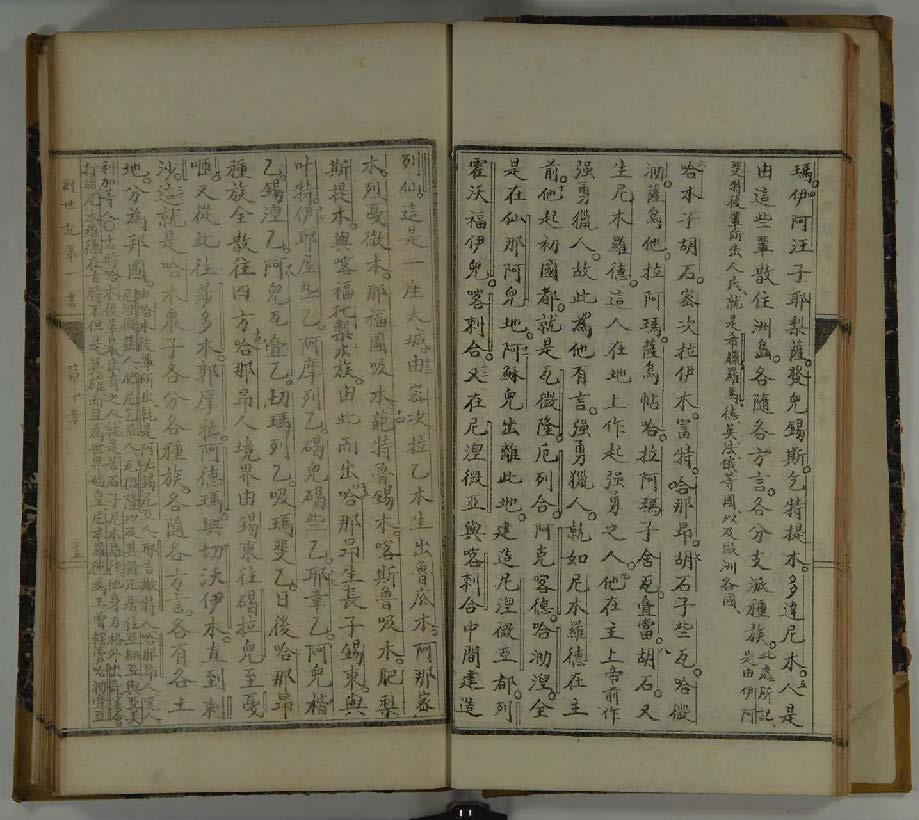 瑪。伊阿汪子耶梨薩。發兒錫斯。乞特提木。多違尼木。人是
由這些輩散住洲島。各隨各方言。各分支派種族。此處所記是由伊阿
斐特後輩所出人民、就是希臘、羅馬、德英法俄等國、以及歐洲各國、
哈木子胡石。密次拉伊木。富特。哈那昂。胡石子些瓦。哈微
泐。薩烏他。拉阿瑪。薩烏帖哈。拉阿瑪子舍瓦。疊當。胡石又
生尼木蘿德。這人在地上作起强勇之人。他在主上帝前作
强勇獵人。故此為他有言。强勇獵人。就如尼木蘿德在主
前。他起初國都。就是瓦微隆。厄列合。阿克客德。哈泐湼。全
是在仙那阿兒地。阿蘇兒出離此地。建造尼湼微亞都。列
霍沃福伊兒。喀剌合。又在尼湼微亞與喀剌合中間建造
列仙。這是一座大城。由密次拉乙木生出魯底木。阿那密
木。列戞微木。那福圖吸木。葩特魯錫木。喀斯魯吸木。肥梨
斯提木。與喀福托梨木族。由此而出哈那昂生長子錫東。與
叶特。伊耶屋些乙。阿摩列乙。碣兒碣些乙。耶韋乙。阿兒楷
乙。錫湼乙。阿兒瓦疊乙。切瑪列乙。吸瑪斐乙。日後哈那昂
種族全散往四方哈那昂人境界由錫東往碣拉兒至戞
咂。又從此往莎多木。郭摩拉。阿德瑪。與切沃伊木。直到剌
沙。這就是哈木眾子各分各種族。各隨各方言。各有各土
地。分為邦國。
創世記第一書 第十章